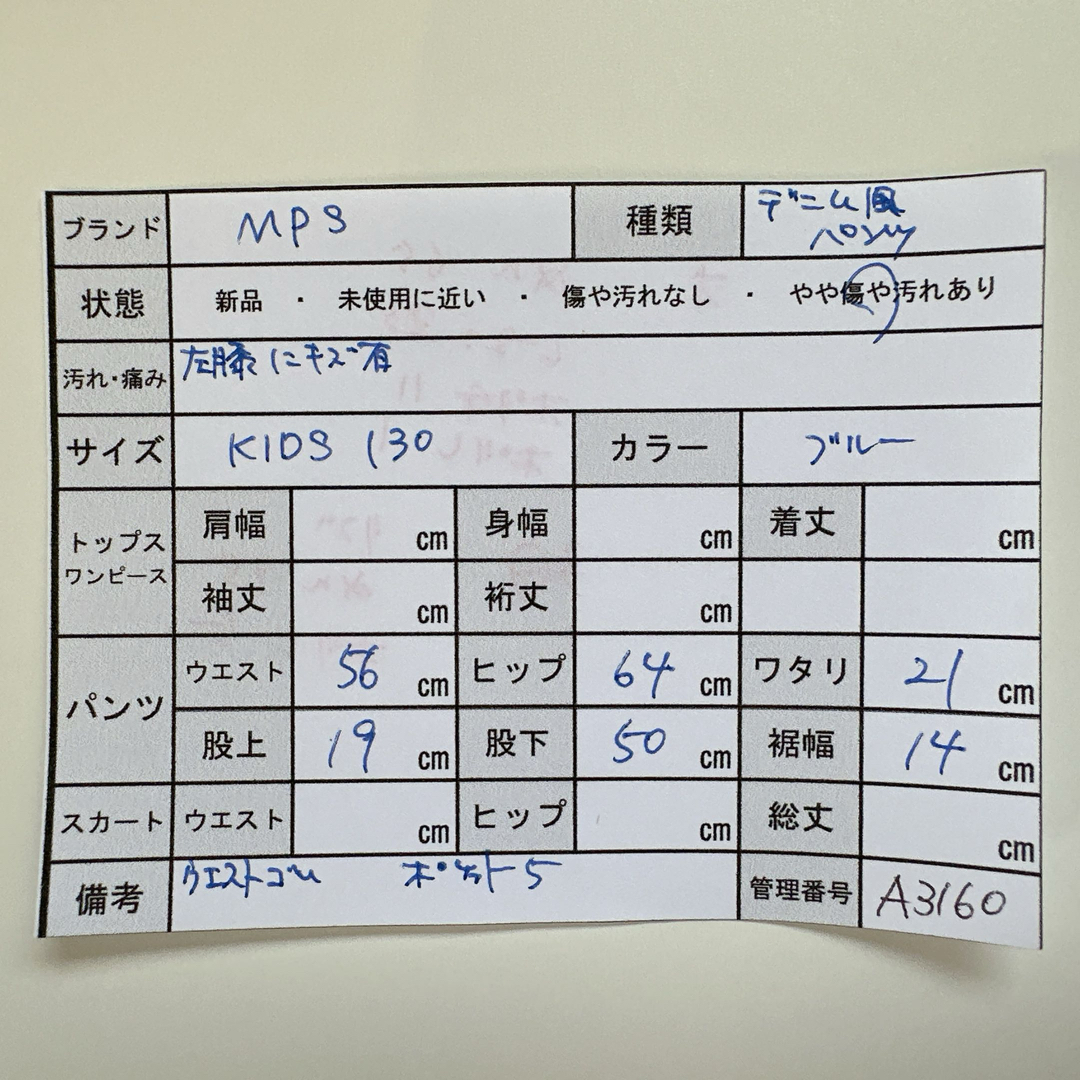 ブランド MPS 種類 デニム風
パンツ
状態 新品 ・ 未使用に近い ・ 傷や汚れなし ・ やや傷や汚れあり
汚れ・痛み 左膝にキズ有
サイズ KIDS 130 カラー ブルー
トップス
ワンピース
肩幅 cm 身幅 cm 着丈 cm
袖丈 cm 裄丈 cm
パンツ
ウエスト 56 cm ヒップ 64 cm ワタリ 21 cm
股上 19 cm 股下 50 cm 裾幅 14 cm
スカート ウエスト cm ヒップ cm 総丈 cm
備考 ウエストゴム ポケット5 管理番号 A3160